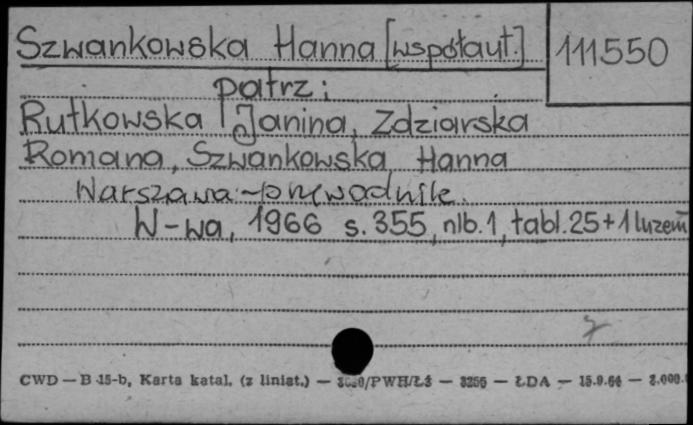 Szwankowska Hanna [współaut.] 111550
patrz:
Rutkowska Janina, Zdziarska
Romana, Szwankowska Hanna
Warszawa-przewodnik.
W-wa, 1966 s. 355, nlb. 1, tabl. 25 + 1 luzem
7
CWD — B 15-b, Karta katal. (z liniat.) — /PWH/Ł3 — 3256 — ŁDA — 15.9.64 —